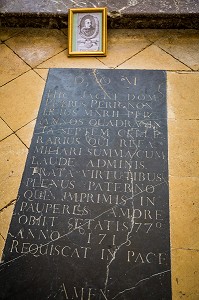 D O M
HIC JACET DOM
PETRUS PERRIGNON
HUJUS MNRII PER
ANNOS QUADRAGIN
TA SEPTEM CELLE
RARIUS QUI RE FA
MILIARI SUMMA CUM
LAUDE ADMINIS
TRATA VIRTUTIBUS
PLENUS PATERNO
QUE IMPRIMIS IN
PAUPERES AMORE
OBIIT ÆTATIS 77º
ANNO 1715
REQUIESCAT IN PACE
AMEN